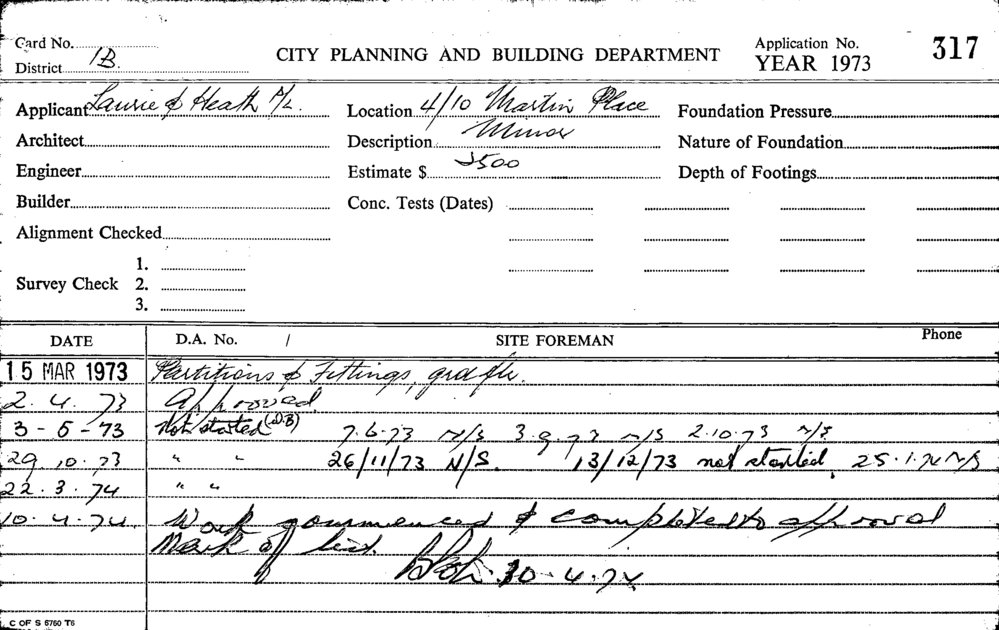 Card No.
District 1B.
CITY PLANNING AND BUILDING DEPARTMENT
Application No. 317
YEAR 1973
Applicant Laurie & Heath P/L.
Location 4/10 Martin Place
Foundation Pressure
Architect
Description Minor
Nature of Foundation
Engineer
Estimate $ 2500
Depth of Footings
Builder
Conc. Tests (Dates)
Alignment Checked
Survey Check 1.
2.
3.
DATE D.A. No. / SITE FOREMAN Phone
15 MAR 1973 Partitions & Fittings, grd flr.
2. 4. 73 Approved
3-5-73 Not started (D.B) 7.6.73 N/S 3.9.73 N/S 2.10.73 N/S
29.10.73 " " 26/11/73 N/S. 13/12/73 not started, 25.1.74 N/S
22.3.74 " "
10.4.74. Work commenced & completed to approval
Mark off list. 30.4.74
C OF S 6760 T6